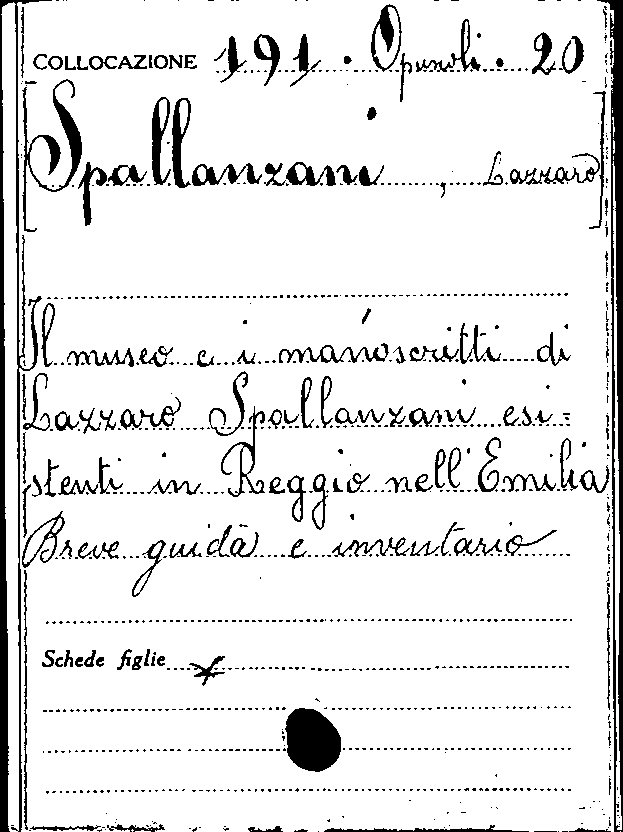 COLLOCAZIONE 191. Opuscoli. 20
[Spallanzani, Lazzaro]
Il museo e i manoscritti di
Lazzaro Spallanzani esi=
stenti in Reggio nell'Emilia
Breve guida e inventario
Schede figlie